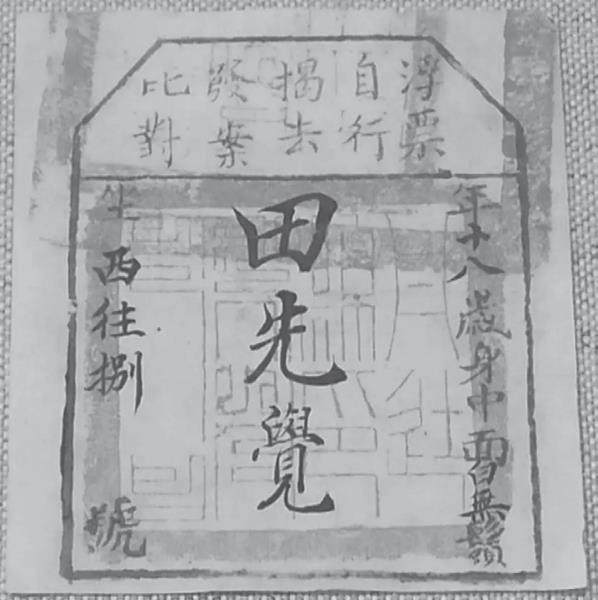 浮票
自行
揭去
發案
比對
年十八歲身中面無鬚
田先覺
坐西往捌號